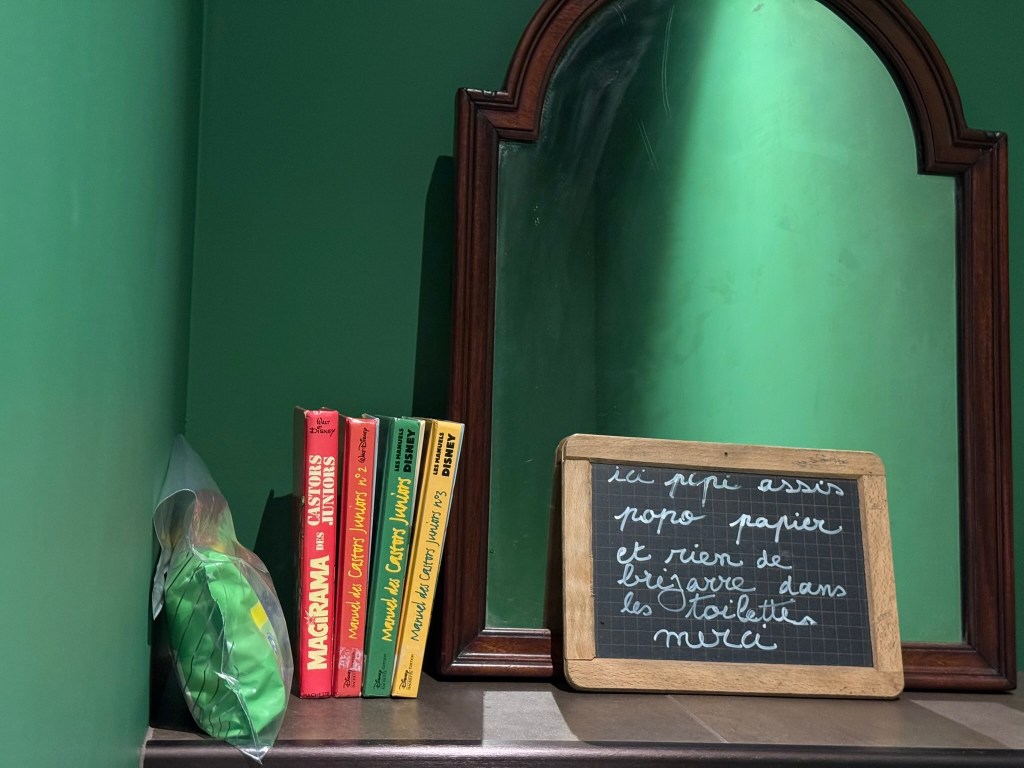 Walt Disney
MAGIRAMA DES CASTORS JUNIORS
HACHETTE
Manuel des Castors Juniors n°2 Walt Disney
Manuel des Castors Juniors LES MANUELS DISNEY
Manuel des Castors Juniors n°3 LES MANUELS DISNEY
ici pipi assis
popo papier
et rien de
bizarre dans
les toilettes
merci